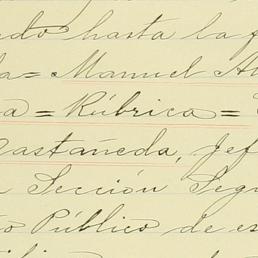 ado hasta la f
la = Manuel Al
a = Rúbrica =
Castañeda, Jef
a Sección Segu
io Público de es